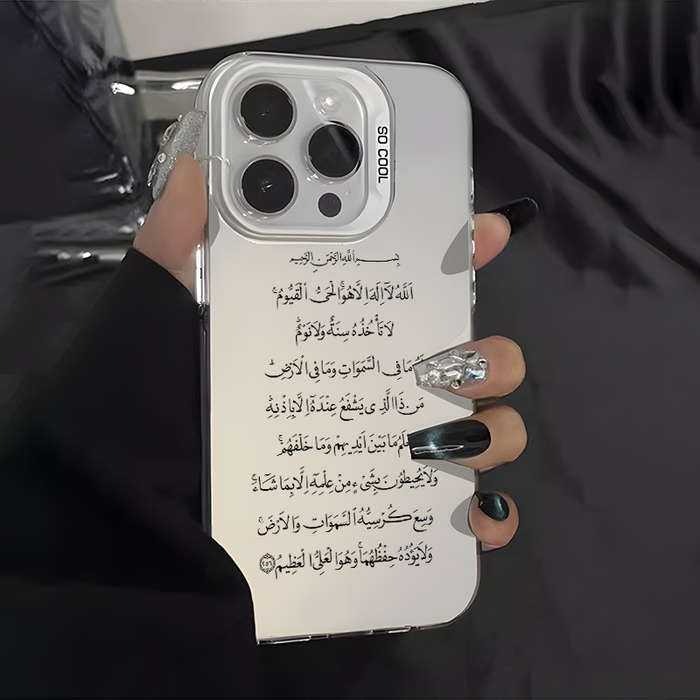 SO COOL
بِسْــمِ اللهِ الرَّحْمٰنِ الرَّحِيْمِ
اَللّٰهُ لَآ اِلٰهَ اِلَّا هُوَۚ اَلْحَىُّ الْقَيُّوْمُ ۚ
لَا تَأْخُذُهٗ سِنَةٌ وَّلَا نَوْمٌ ؕ
مَا فِى السَّمٰوَاتِ وَمَا فِى الْاَرْضِ ؕ
مَنْ ذَا الَّذِىْ يَشْفَعُ عِنْدَهٗۤ اِلَّا بِاِذْنِهٖ ؕ
مَا بَيْنَ اَيْدِيْهِمْ وَمَا خَلْفَهُمْ ۚ
وَلَا يُحِيْطُوْنَ بِشَىْءٍ مِّنْ عِلْمِهٖۤ اِلَّا بِمَا شَآءَ ۚ
وَسِعَ كُرْسِيُّهُ السَّمٰوَاتِ وَالْاَرْضَ ۚ
وَلَا يَئُوْدُهٗ حِفْظُهُمَا ۚ وَهُوَ الْعَلِىُّ الْعَظِيْمُ